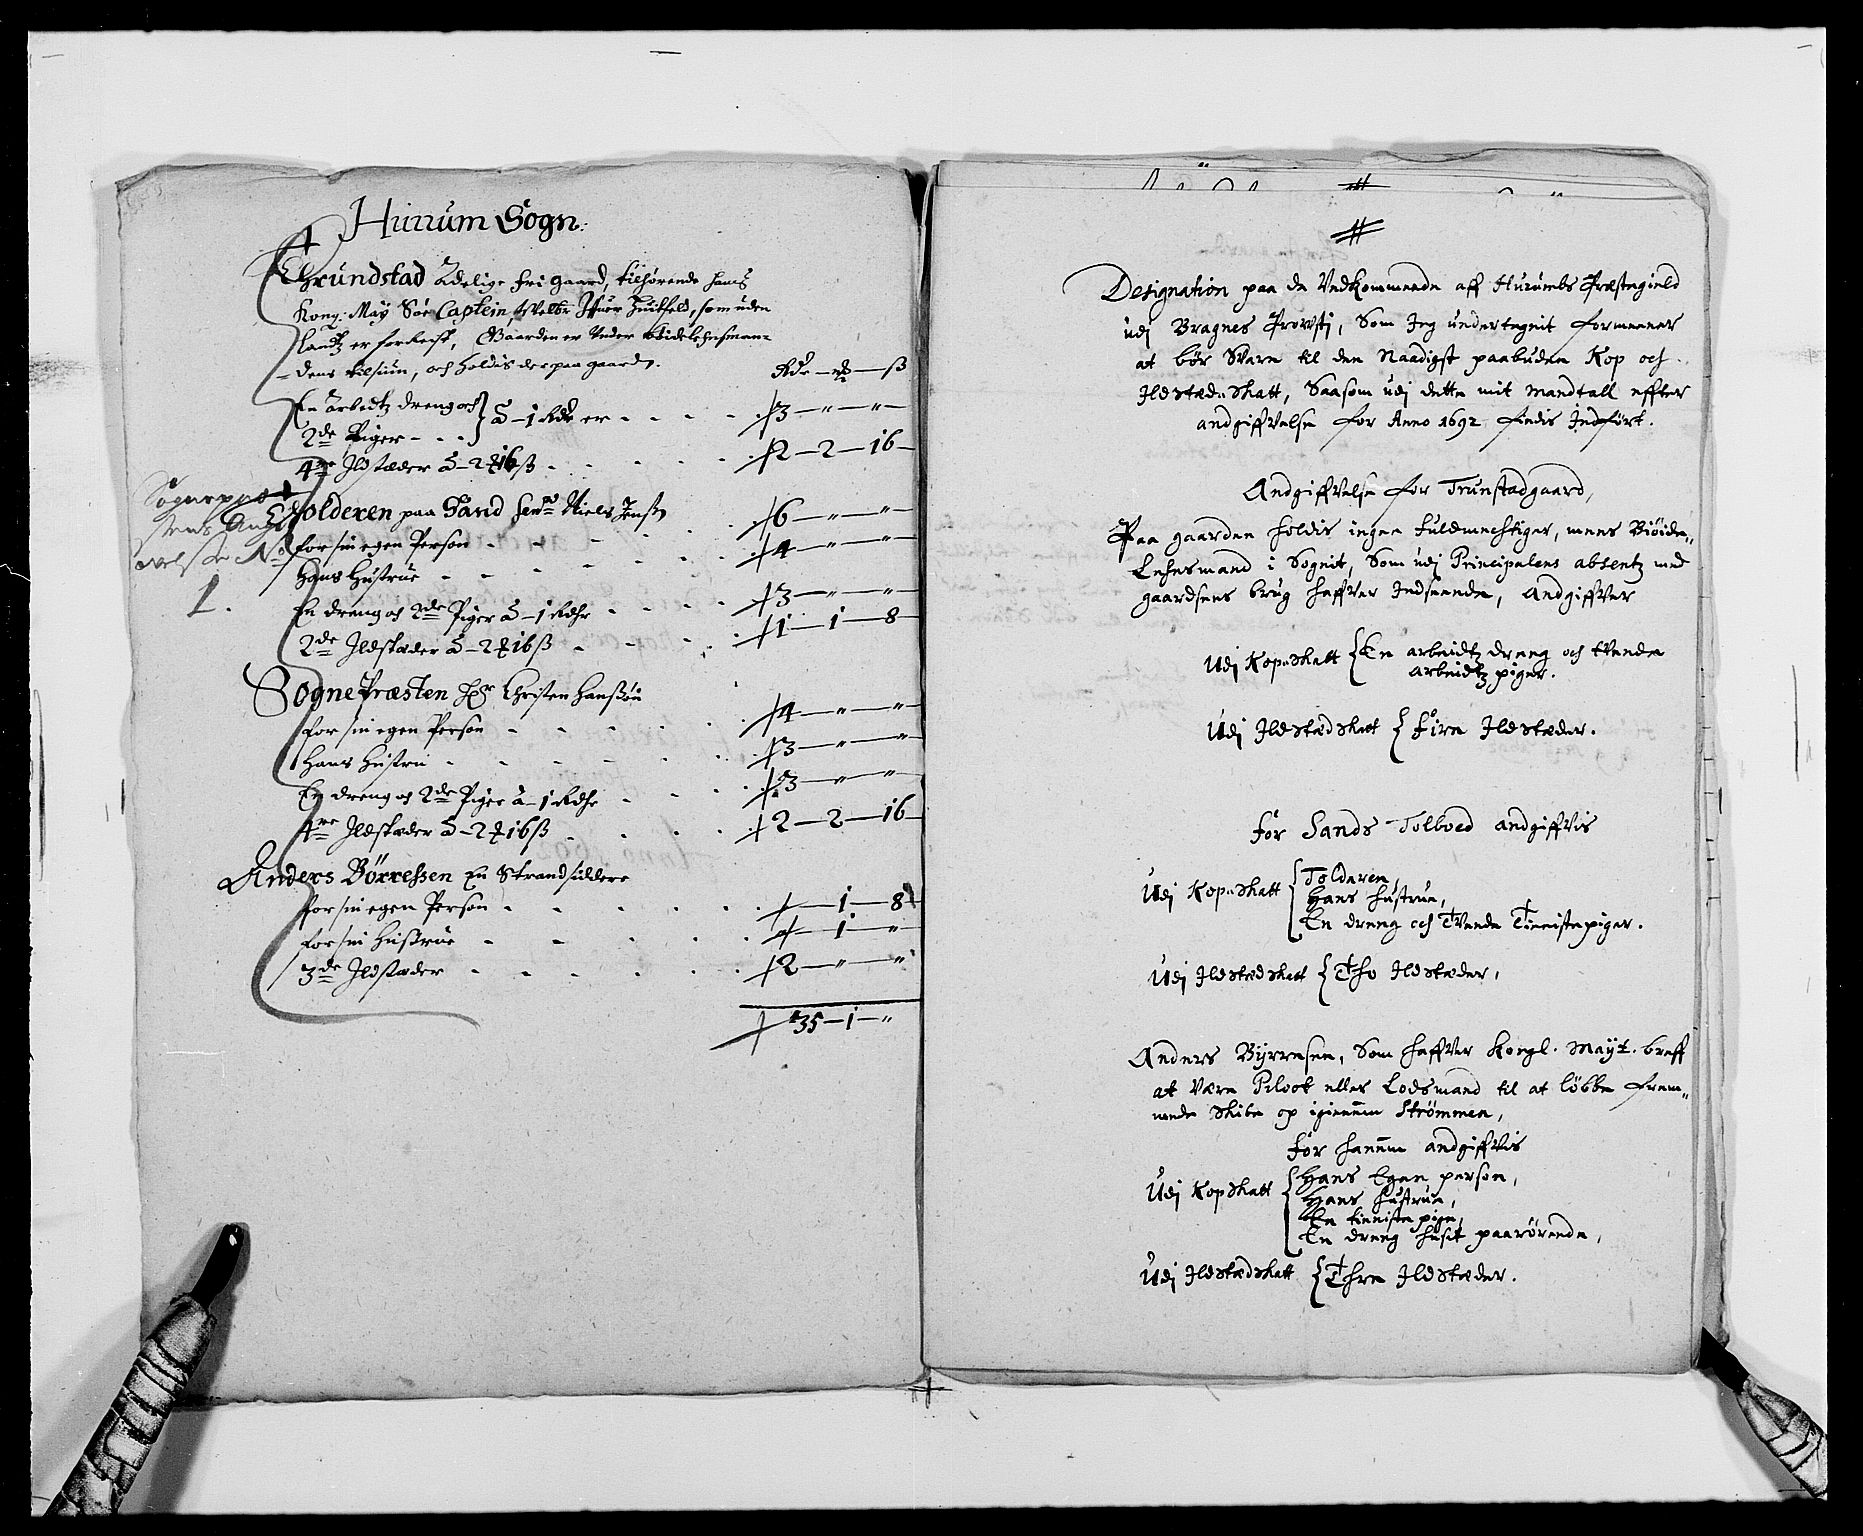 Hurrum Sogn.
Thrundstad Adelige fri gaard, tilhørende hans
Kong: May Søe Captein, Welbr Iffuer Huitfeld, som uden
landtz er forreist, Gaarden er Under Bidelehnsman-
dens tilsiun, och holdis der paa gaarden.
Rdr — — ß
En arbeidtz dreng och
2de Piger - - - } a - 1 Rdr er - - - - 3 — " — "
4re Ildstæder a - 2 16 ß - - - - 2 — 2 — 16
Sognepræ
stens Angi
velsse No
1.
Tolderen paa Sand Niels Jenss
for sin egen Person - - - 6 — " — "
Hans Hustrue - - - - 4 — " — "
En dreng och 2de Piger a - 1 Rdr - - - 3 — " — "
2de Ildstæder a - 2 16 ß - - - 1 — 1 — 8
Sogne Præsten Hr Christen Hanssøn
for sin egen Person - - - 4 — " — "
Hans Hustru - - - - 3 — " — "
En dreng och 2de Piger a - 1 Rdr - - - 3 — " — "
4re Ildstæder a - 2 16 ß - - - 2 — 2 — 16
Anders Börressen En Strandsiddere
for sin egen Person - - - — 1 — 8
for sin Hustrue - - - — 1 — "
3de Ildstæder - - - 2 — " — "
35 — 1 — "
Designation paa de Vedkommende aff Hurumbs Præstegield
udj Bragnes Prowstj, Som Jeg undertegnit formeener
at bör Svare til den Naadigst paabudene Kop och
Ildstæde Skatt, Saasom udj dette mit Mandtall effter
andgiffvelse for Anno 1692 findis Indfört.
Andgiffvelse for Trunstadgaard,
Paa gaarden holdis ingen fuldmechtiger, mens Biöiden,,
Lehnsmand i Sognit, Som udj Principalens absentz med
gaardsens brug haffver Indseende, Andgiffver
Udj Kopeskatt { En arbeidtz dreng och tvende
arbeidtz piger.
Udj Ildstædskatt { Fire Ildstæder.
För Sands Tolboed andgiffvis
Udj Kopeskatt { Tolderen,
Hans hustrue,
En dreng och Tvende Tienistepiger.
Udj Ildstædskatt { Tho Ildstæder,
Anders Byrresen, Som haffver Kongl. Mayt. breff
at være Piloot eller Lodsmand til at löbbe frem,,
mede Skibe op igiennem Strömmen,
För hannem andgiffvis
Udj Kopskatt { Hans Egen person,
Hans hustrue,
En tieniste pige,
En dreng husit paarörende,
Udj Ildstædskatt { Thre Ildstæder.